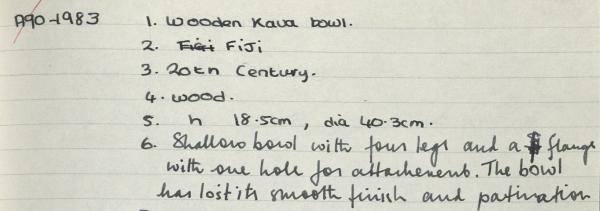 A90-1983 1. Wooden Kava bowl.
2. Fiji FIJI
3. 20th Century.
4. wood.
5. h 18.5cm, dia 40.3cm.
6. Shallow bowl with four legs and a flange
with one hole for attachement. The bowl
has lost its smooth finish and patination